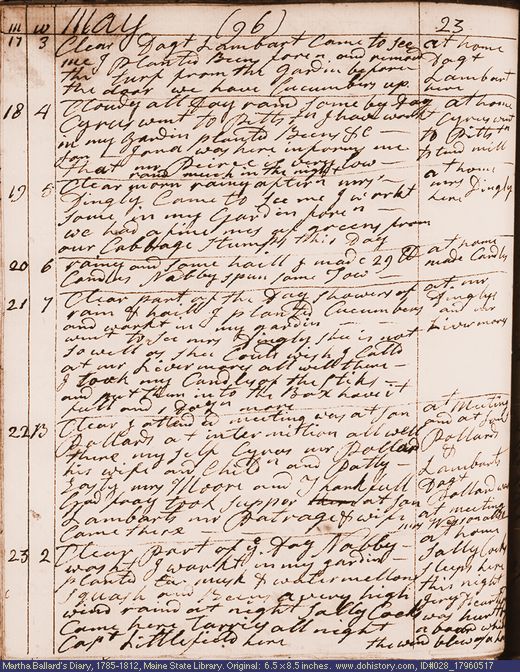 m w May (96) 23
17 3 Clear Dagt Lambart Came to see at home
me I planted Beens fore n and removd Dagt
the turf from the Garden before Lambart
the door we have Cucumbers up here
18 4 Cloudy all Day raind some by Day at home
Cyrus went to Pitts tn I have workt Cyrus went
in my gardin planted Beens &C to Pitts tn
Son L and was here informs me to tend mill
that mr Peirce is very low
raind much in the night
19 5 Clear morn rainy aftern mrs at home
Dingly Came to see me I workt mrs Dingly
some in my Gardin fore n here
we had a fine mes of greens from
our Cabbage Stumps this Day
20 6 rainy and some haill I made 29 at home
Candles Nabby spun some Tow made Candls
21 7 Clear part of the Day showers of at mr
rain & haill I planted Cucumbers Dinglys
and workt in my gardin and mr
went to see mrs Dingly she is not Livermores
so well as she Could wish I Calld
at mr Livermores all well there
I took my Candls of the sticks
and put them into the Box have it
full and 1 Dozn more
22 B Clear I attend d meeting was at Son at Meeting
Pollards at intermition all well and at Son
there my self Cyrus mr Pollard Pollard
his wife and Child n and Patty &
Town mrs Moore and Thankfull Lambarts
took supper at Son Dagt
Lambarts mr & wife Pollard
Came there at meeting
23 2 Clear part of ye Day Nabby at home
washt I workt in my gardin Sally Cook
planted musk & water mellons sleeps here
squash and Beens a very high this night
wind raind at night Sally Cook
Came here tarries all night was hurt
Capt Littlefield here the wind blew of a
Martha Ballard's Diary, 1785-1812, Maine State Library. Original: 6.5 x 8.5 inches. www.dohistory.org, ID#028_17960517